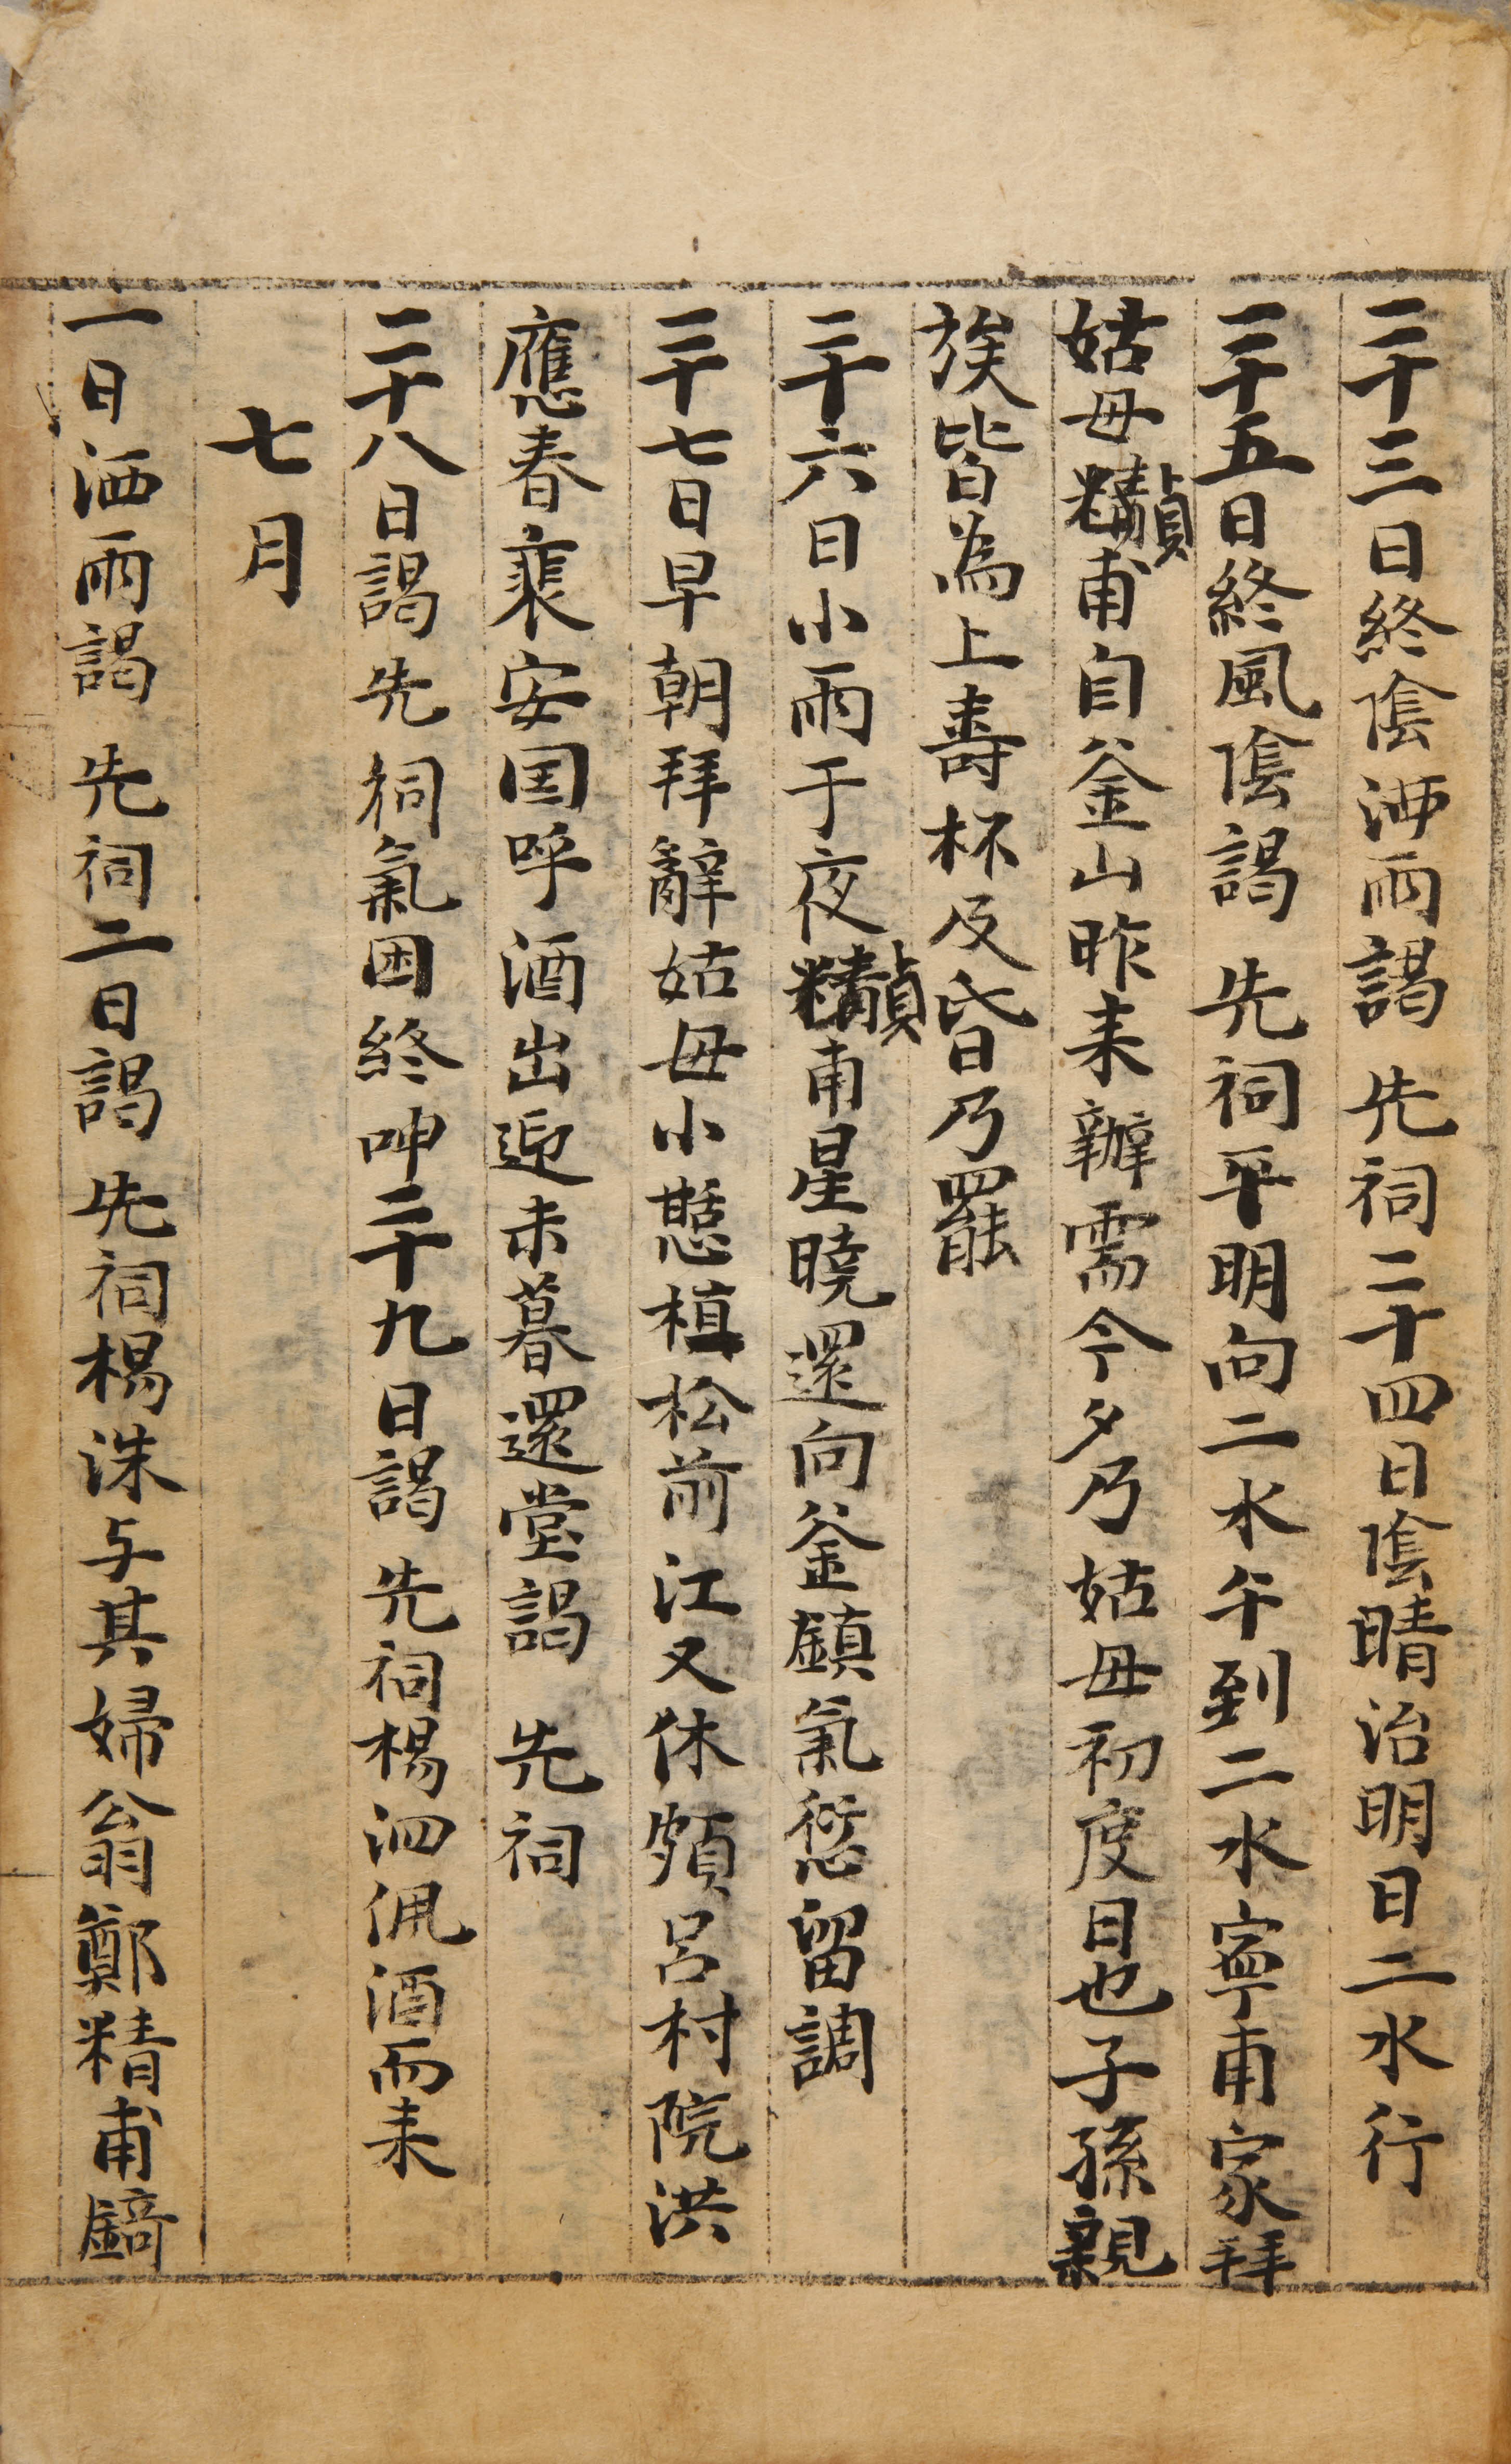 二十三日終陰洒雨謁 先祠二十四日陰晴治明日二水行
二十五日終風陰謁 先祠平明向二水午到二水寧甫家拜
姑母甫自釜山昨来辦需今夕乃姑母初度日也子孫親
族皆為上壽杯及昏乃罷
二十六日小雨于夜甫星曉還向釜鎮氣愆留調
二十七日早朝拜辭姑母小憇植松前江又休頗呂村院洪
應春裵安国呼酒出迎未暮還堂謁 先祠
二十八日謁 先祠氣困終呻二十九日謁 先祠楊泗佩酒而来
七月
一日洒雨謁 先祠二日謁 先祠楊洙与其婦翁鄭精甫錡